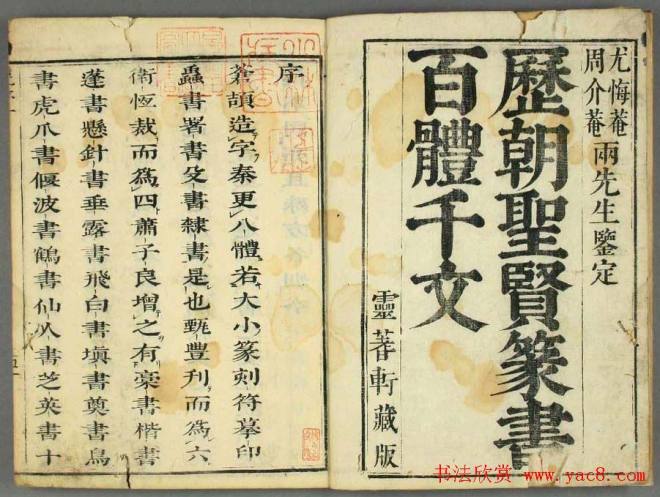 尤悔菴
周介菴
兩先生鑒定
歷朝聖賢篆書
百體千文
靈蓍軒藏版
序
蒼頡造字秦更八體若大小篆刻符摹印
蟲書署書殳書隸書是也甄豐刋而爲六
衛恆裁而爲四蕭子良增之有槀書楷書
蓬書懸針書垂露書飛白書填書奠書鳥
書虎爪書偃波書鶴書仙人書芝英書十
书法欣赏 www.yac8.com